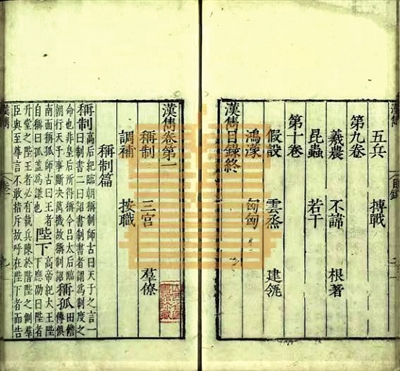 五兵 搏戰
第九卷
羲農 不諦 根著
昆蟲 若干
第十卷
假設 雲烝 建瓴
鴻溕 匈匈
漢雋目錄終
漢雋卷第一
稱制 三官 羣僚
調補 按職
稱制篇
稱制 高后紀臨朝稱制師古曰天子之言一
曰制書二曰詔書制書者謂爲制度之
命也非皇后所得稱今呂太后臨
朝行天子事斷決萬機故稱制詔 稱孤 田儋傳
南面稱孤師古曰王者
自稱曰孤蓋爲謙也 陛下 高帝紀大王
陛下應劭曰
陛者升堂之陛王者必有執兵陳於階陛之側羣
臣與至尊言不敢指斥故呼在陛下者而告